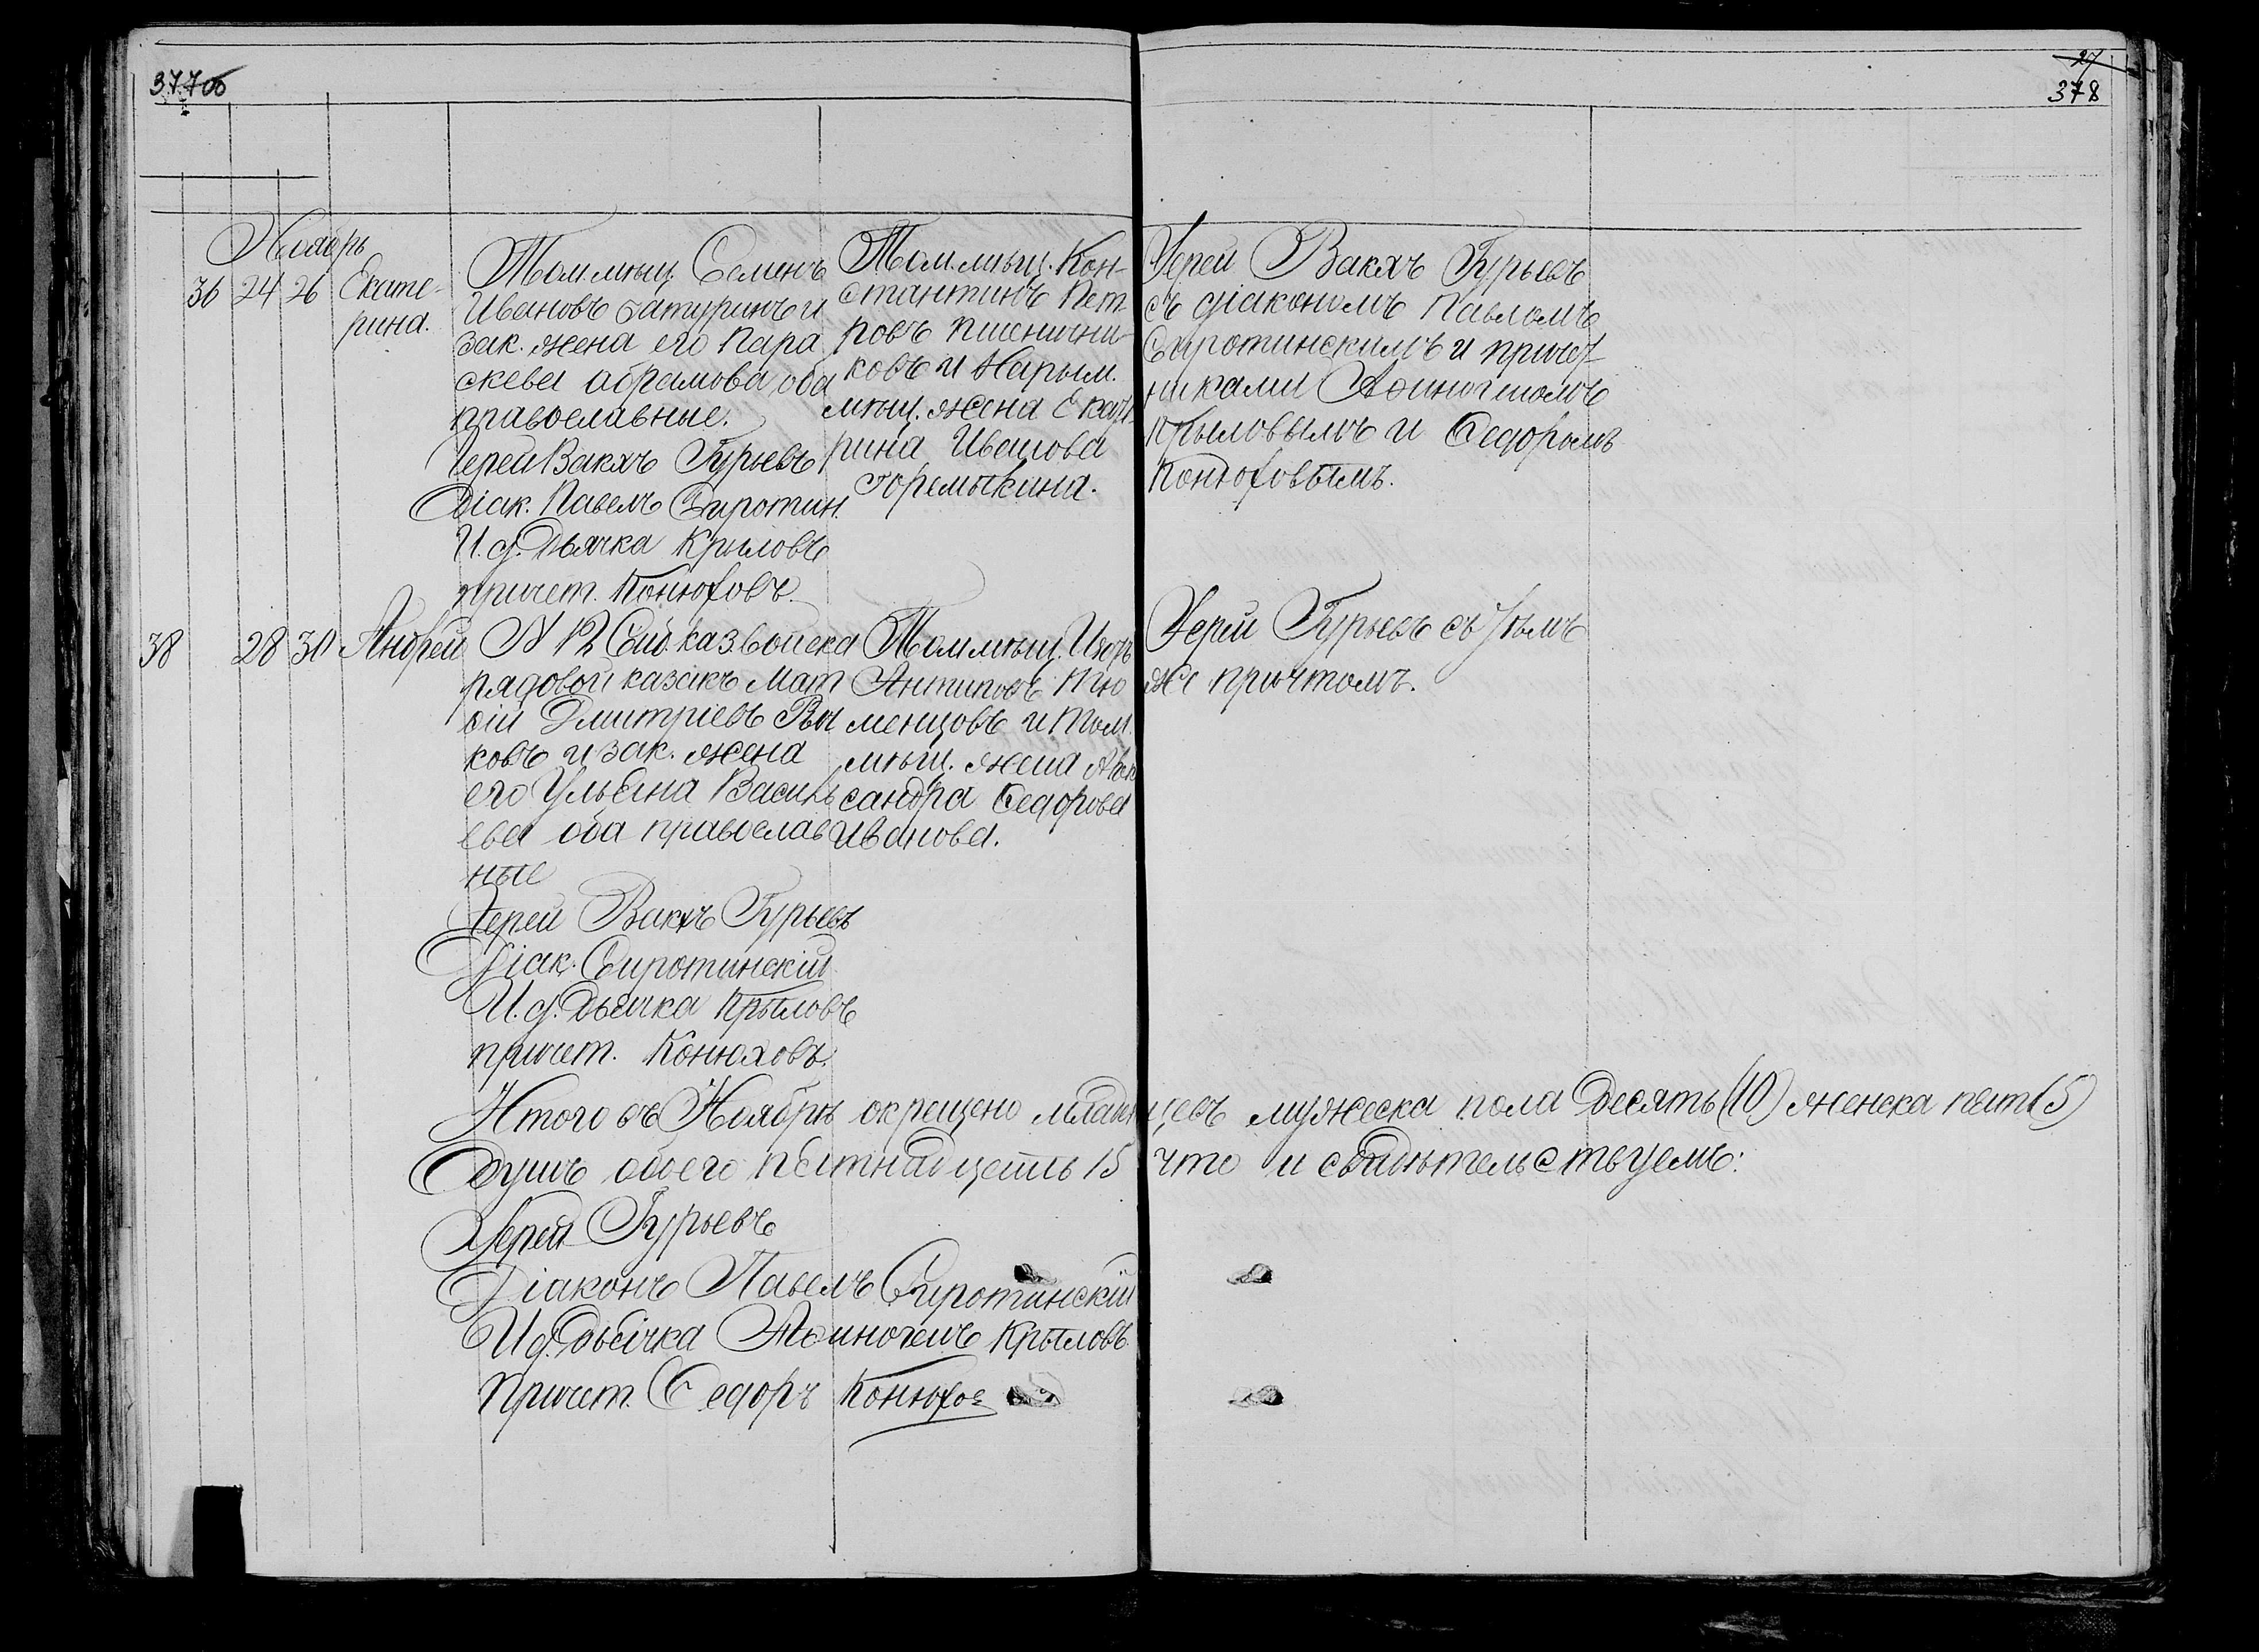 377об
27
378
Ноябрь
36 24 26 Екате-
рина.
Том. мѣщ. Семенъ
Ивановъ Батуринъ и
зак. жена его Пара
скева Абрамова, оба
православные.
Іерей Вакхъ Гурьевъ
Діак. Павелъ Сиротин.
И. д. Дьячка Крыловъ
причет. Конюховъ.
Том. мѣщ. Кон-
стантинъ Пет-
ровъ Пшенични-
ковъ и Нарым.
мѣщ. жена Екате-
рина Иванова
Горемыкина.
Іерей Вакхъ Гурьевъ
съ діакономъ Павломъ
Сиротинскимъ и причет-
никами Аѳиногеномъ
Крыловымъ и Ѳедоромъ
Конюховымъ.
38 28 30 Андрей
N 12 Сиб. каз. войска
рядовой казакъ Мат
ѳій Дмитріевъ Вы
ковъ и зак. жена
его Ульяна Василь
ева оба православ
ные
Іерей Вакхъ Гурьевъ
Діак. Сиротинскій
И. д. Дьячка Крыловъ
причет. Конюховъ.
Том. мѣщ. Игорь
Антиповъ Тю
менцовъ и Том.
мѣщ. жена Алек
сандра Ѳедорова
Иванова.
Іерей Гурьевъ съ тѣмъ
же причтомъ.
Итого въ Ноябрѣ окрещено младенцевъ мужеска пола Десять (10) женска пять (5)
Душъ обоего пятнадцать 15 что и свидѣтельствуемъ:
Іерей Гурьевъ
Діаконъ Павелъ Сиротинскій
И. д. Дьячка Аѳиногенъ Крыловъ
Причет. Ѳедоръ Конюхов